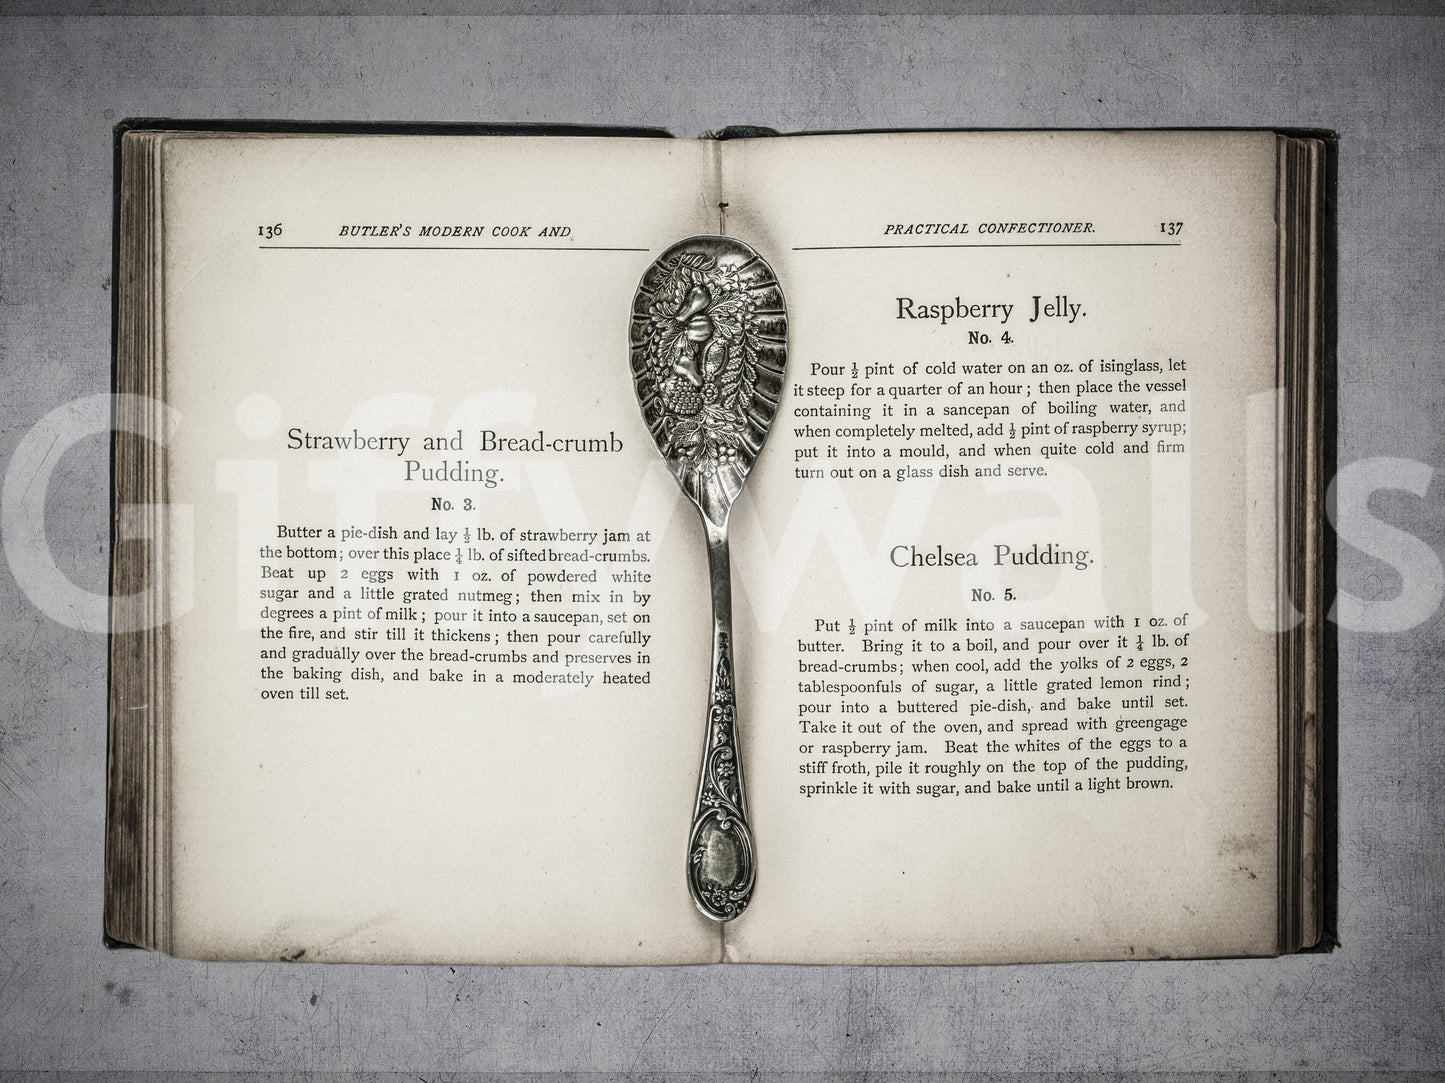 136 BUTLER'S MODERN COOK AND
Strawberry and Bread-crumb
Pudding.
No. 3.
Butter a pie-dish and lay ½ lb. of strawberry jam at
the bottom; over this place ¼ lb. of sifted bread-crumbs.
Beat up 2 eggs with 1 oz. of powdered white
sugar and a little grated nutmeg; then mix in by
degrees a pint of milk; pour it into a saucepan, set on
the fire, and stir till it thickens; then pour carefully
and gradually over the bread-crumbs and preserves in
the baking dish, and bake in a moderately heated
oven till set.
PRACTICAL CONFECTIONER. 137
Raspberry Jelly.
No. 4.
Pour ½ pint of cold water on an oz. of isinglass, let
it steep for a quarter of an hour; then place the vessel
containing it in a sancepan of boiling water, and
when completely melted, add ½ pint of raspberry syrup;
put it into a mould, and when quite cold and firm
turn out on a glass dish and serve.
Chelsea Pudding.
No. 5.
Put ½ pint of milk into a saucepan with 1 oz. of
butter. Bring it to a boil, and pour over it ¼ lb. of
bread-crumbs; when cool, add the yolks of 2 eggs, 2
tablespoonfuls of sugar, a little grated lemon rind;
pour into a buttered pie-dish, and bake until set.
Take it out of the oven, and spread with greengage
or raspberry jam. Beat the whites of the eggs to a
stiff froth, pile it roughly on the top of the pudding,
sprinkle it with sugar, and bake until a light brown.
Giffywalls